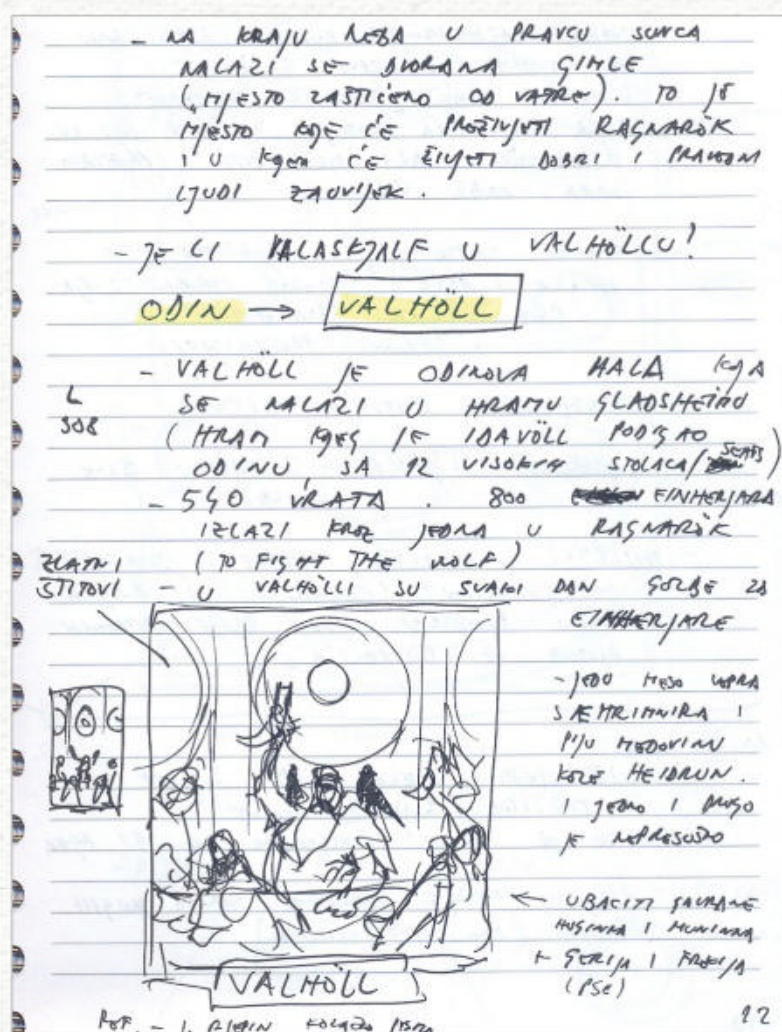 - NA KRAJU NEBA U PRAVCU SUNCA
NALAZI SE DVORANA GIMLE
("MJESTO ZAŠTIĆENO OD VATRE"). TO JE
MJESTO KOJE ĆE PREŽIVJETI RAGNARÖK
I U KOJEM ĆE ŽIVJETI DOBRI I PRAVEDNI
LJUDI ZAUVIJEK.
- JE LI VALASKJALF U VALHÖLLU?
ODIN → VALHÖLL
- VALHÖLL JE ODINOVA HALA KOJA
SE NALAZI U HRAMU GLADSHEIMU
(HRAM KOJEG JE IDAVÖLL PODIGAO
ODINU, SA 12 VISOKIH STOLACA/SEATS)
L
308
- 540 VRATA. 800 EINHERJARA
IZLAZI KROZ JEDNA U RAGNARÖK
(TO FIGHT THE WOLF)
- U VALHÖLLI SU SVAKI DAN GOZBE ZA
EINHERJARE
ZLATNI
ŠTITOVI
- JEDU MESO VEPRA
SÆHRIMNIRA I
PIJU MEDOVINU
KOZE HEIDRUN.
I JEDNO I DRUGO
JE NEPRESUŠNO
← UBACITI GAVRANE
HUGINNA I MUNINNA
+ GERIJA I FREKIJA
(PSE)
VALHÖLL
REF. - 1.
12